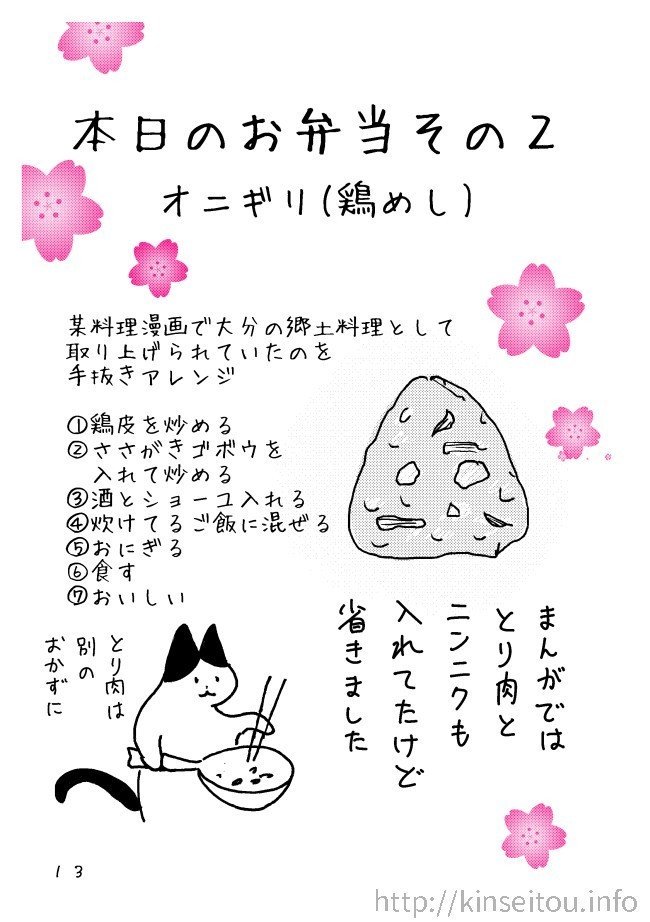 本日のお弁当その2
オニギリ(鶏めし)
某料理漫画で大分の郷土料理として
取り上げられていたのを
手抜きアレンジ
①鶏皮を炒める
②ささがきゴボウを
入れて炒める
③酒とショーユ入れる
④炊けてるご飯に混ぜる
⑤おにぎる
⑥食す
⑦おいしい
まんがでは
とり肉と
ニンニクも
入れてたけど
省きました
とり肉は
別の
おかずに
13
http://kinseitou.info